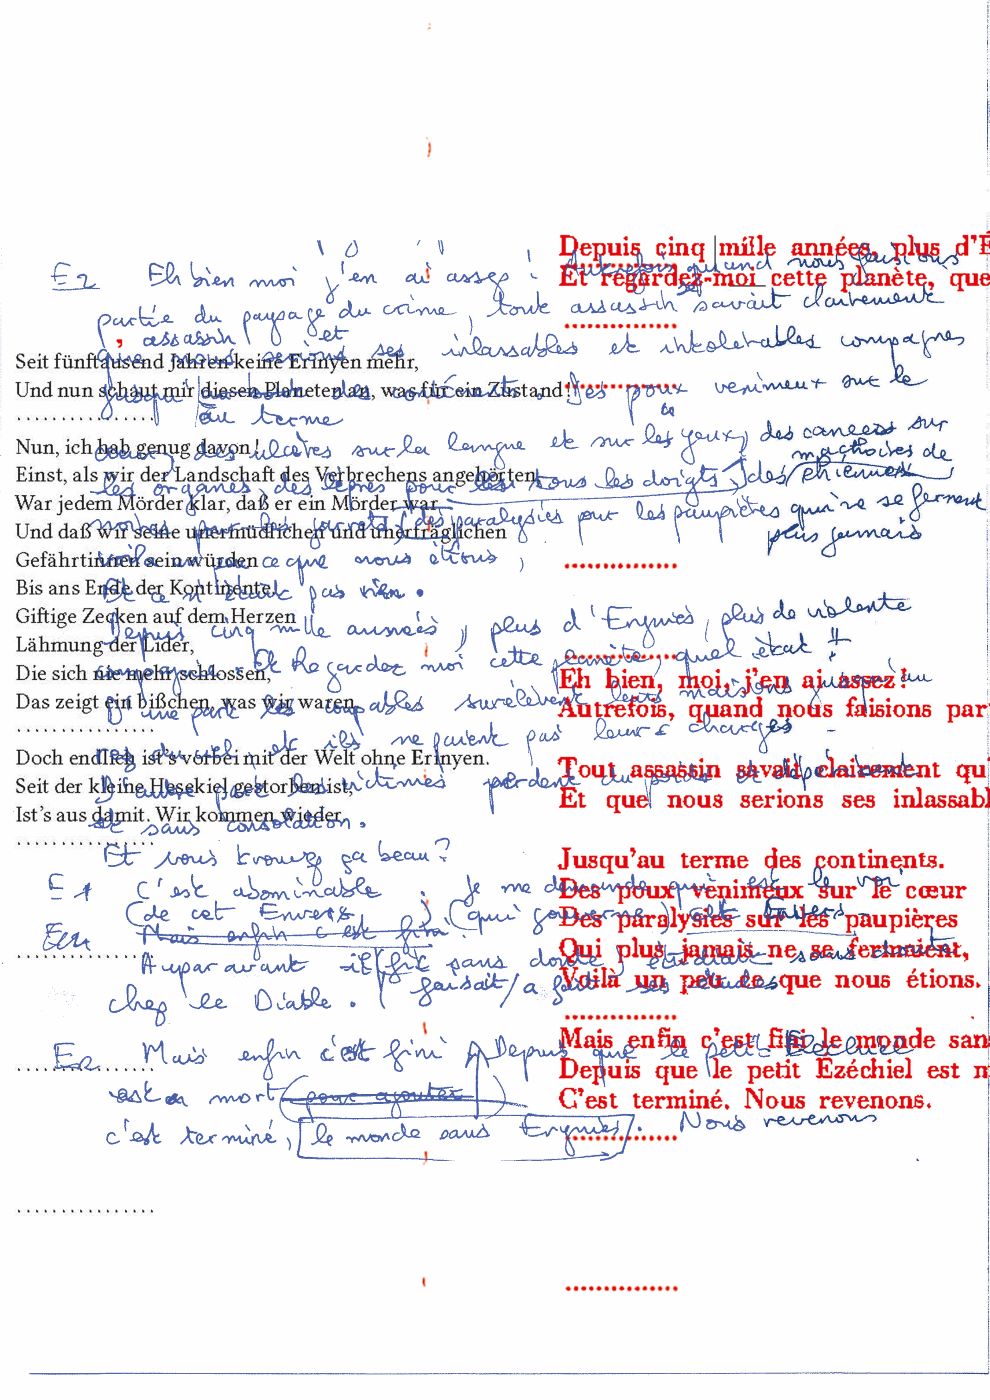 Depuis cinq mille années, plus d'E
Et regardez-moi cette planète, que
...............
...............
...............
Eh bien, moi, j'en ai assez!
Autrefois, quand nous faisions par
Tout assassin savait clairement qu
Et que nous serions ses inlassabl
Jusqu'au terme des continents.
Des poux venimeux sur le cœur
Des paralysies sur les paupières
Qui plus jamais ne se fermaient,
Voilà un peu de que nous étions.
...............
Mais enfin c'est fini le monde san
Depuis que le petit Ezéchiel est m
C'est terminé. Nous revenons.
...............
...............
Seit fünftausend Jahren keine Erinyen mehr,
Und nun schaut mir diesen Planeten an, was für ein Zustand!
................
Nun, ich hab genug davon!
Einst, als wir der Landschaft des Verbrechens angehörten,
War jedem Mörder klar, daß er ein Mörder war
Und daß wir seine unermüdlichen und unerträglichen
Gefährtinnen sein würden
Bis ans Ende der Kontinente.
Giftige Zecken auf dem Herzen
Lähmung der Lider,
Die sich nie mehr schlossen,
Das zeigt ein bißchen, was wir waren.
................
Doch endlich ist's vorbei mit der Welt ohne Erinyen.
Seit der kleine Hesekiel gestorben ist,
Ist's aus damit. Wir kommen wieder.
................
................
................
................
E2 Eh bien moi j'en ai assez! Autrefois quand nous faisions
partie du paysage du crime, tout assassin savait clairement
assassin et
que nous serions ses inlassables et intolérables compagnes
jusqu'au terme des continents. Des poux venimeux sur le
au terme
cœur, des ulcères sur la langue et sur les yeux, des cancers sur
machoires de
les organes des lèpres pour les sous les doigts, des chiennes
des paralysies pour les paupières qui ne se ferment
plus jamais
voilà un peu ce que nous étions,
Et ce n'était pas rien.
Depuis cinq mille années, plus d'Erynies, plus de violente
compagnie. Et Regardez moi cette planète, quel état!!
D'une part les coupables surélèvent leurs maisons jusqu'au
nez du ciel et ils ne paient pas leurs charges
D'autre part les victimes perdent du poids et
et sans consolation.
Et vous trouvez ça beau?
E1 C'est abominable. Je me demande qui est le roi
(de cet Envers) (qui gouverne) cet Envers.
Mais enfin c'est fini.
Auparavant il fit sans doute, étudiait sans doute
faisait/a fait ses études
chez le Diable.
E2 Mais enfin c'est fini Depuis que le petit Ezéchiel
est mort (pour ajouter)
c'est terminé, le monde sans Erynies. Nous revenons